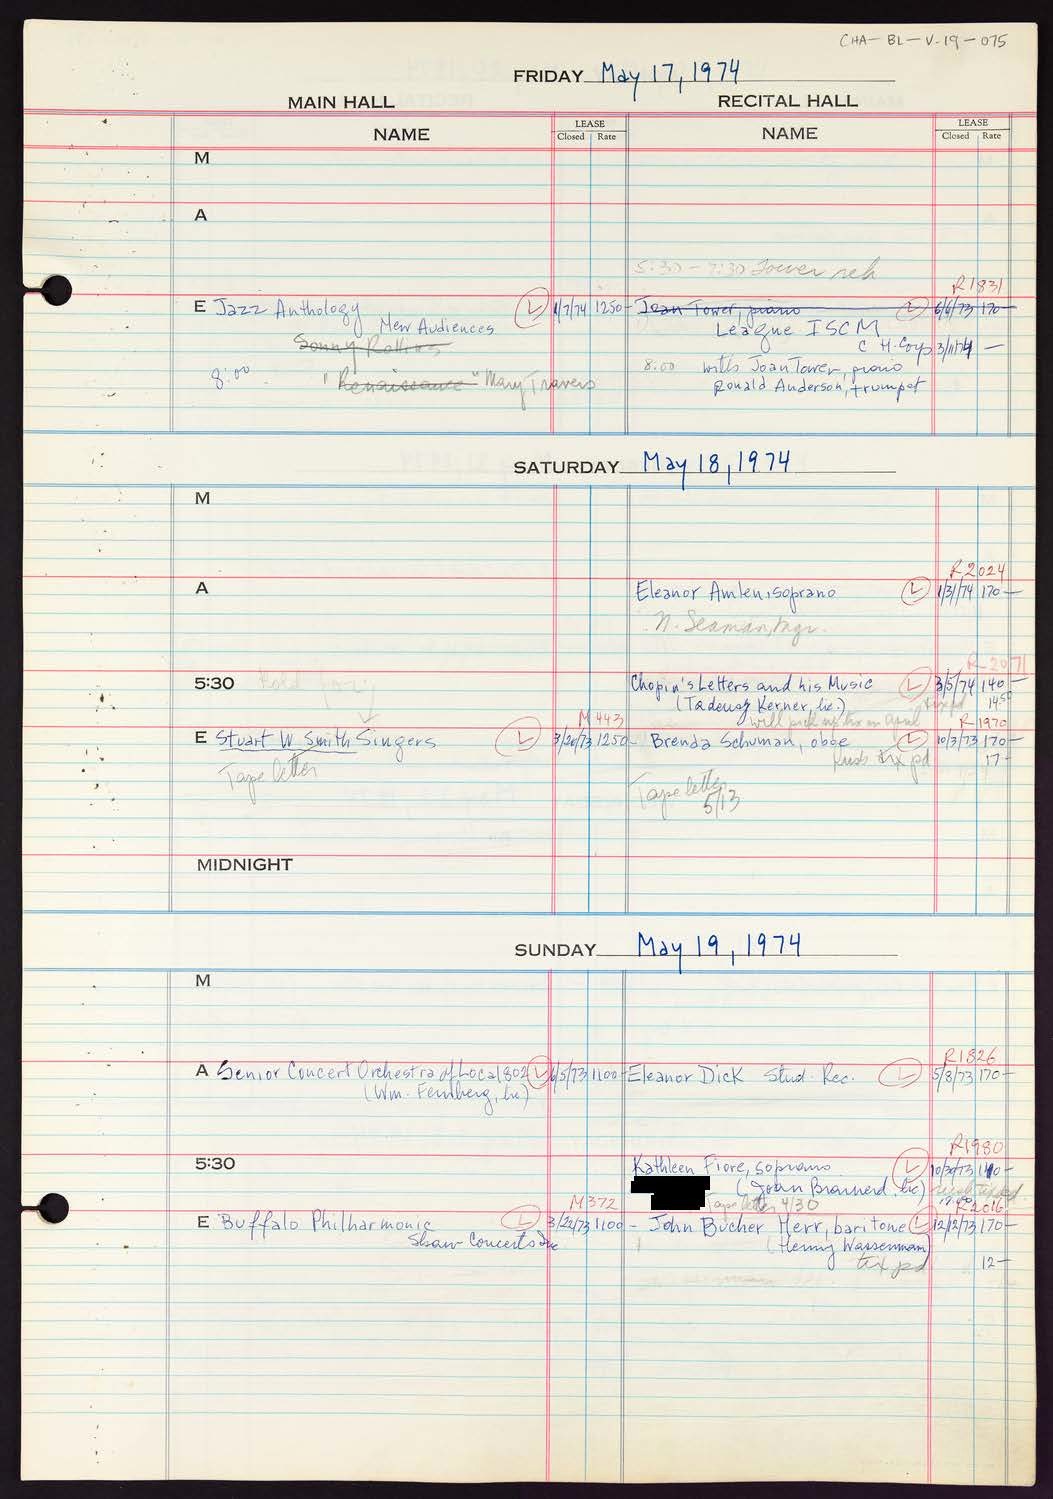 CHA-BL-V-19-075
FRIDAY May 17, 1974
MAIN HALL RECITAL HALL
NAME LEASE Closed Rate NAME LEASE Closed Rate
M
A
5:30 - 7:30 Tower reh
R1831
E Jazz Anthology L 1/7/74 1250- Joan Tower, piano L 6/6/73 170-
New Audiences League ISCM
Sonny Rollins C H. Corp 3/11/74 -
8:00 "Renaissance" Mary Travers 8:00 with Joan Tower, piano
Ronald Anderson, trumpet
SATURDAY May 18, 1974
M
R2024
A Eleanor Amlen, soprano L 1/31/74 170-
N. Seaman, mgr.
R-2071
5:30 Hold Chopin's Letters and his Music L 3/5/74 140-
(Tadeusz Kerner, Inc.) 14.50
M443 will pick up tix in April R-1970
E Stuart W Smith Singers L 3/20/73 1250- Brenda Schuman, oboe L 10/3/73 170-
Tape letter tix pd 17-
Tape letter
5/13
MIDNIGHT
SUNDAY May 19, 1974
M
R1826
A Senior Concert Orchestra of Local 802 L 6/5/73 1100- Eleanor Dick Stud. Rec. L 5/8/73 170-
(Wm. Feinberg, Inc)
R1980
5:30 Kathleen Fiore, soprano L 10/30/73 140-
(Joan Brainerd, Inc)
M372 Tape letter 4/30 R2016
E Buffalo Philharmonic L 3/22/73 1100- John Bucher Herr, baritone L 12/12/73 170-
Shaw Concerts Inc (Henry Wasserman)
tix pd 12-